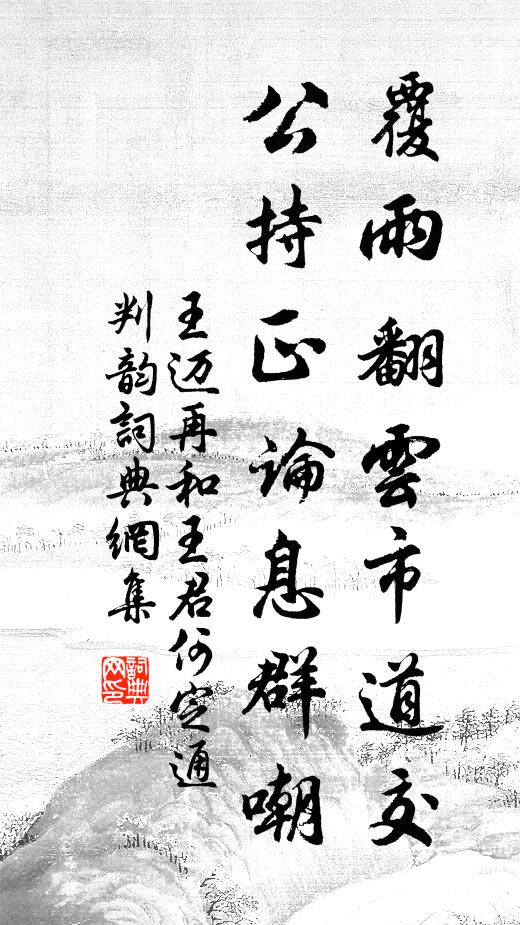 覆雨翻雲市道交
公持正論息群嘲
王迈再和王君何定通
判韵詞典網集
詞典
网印